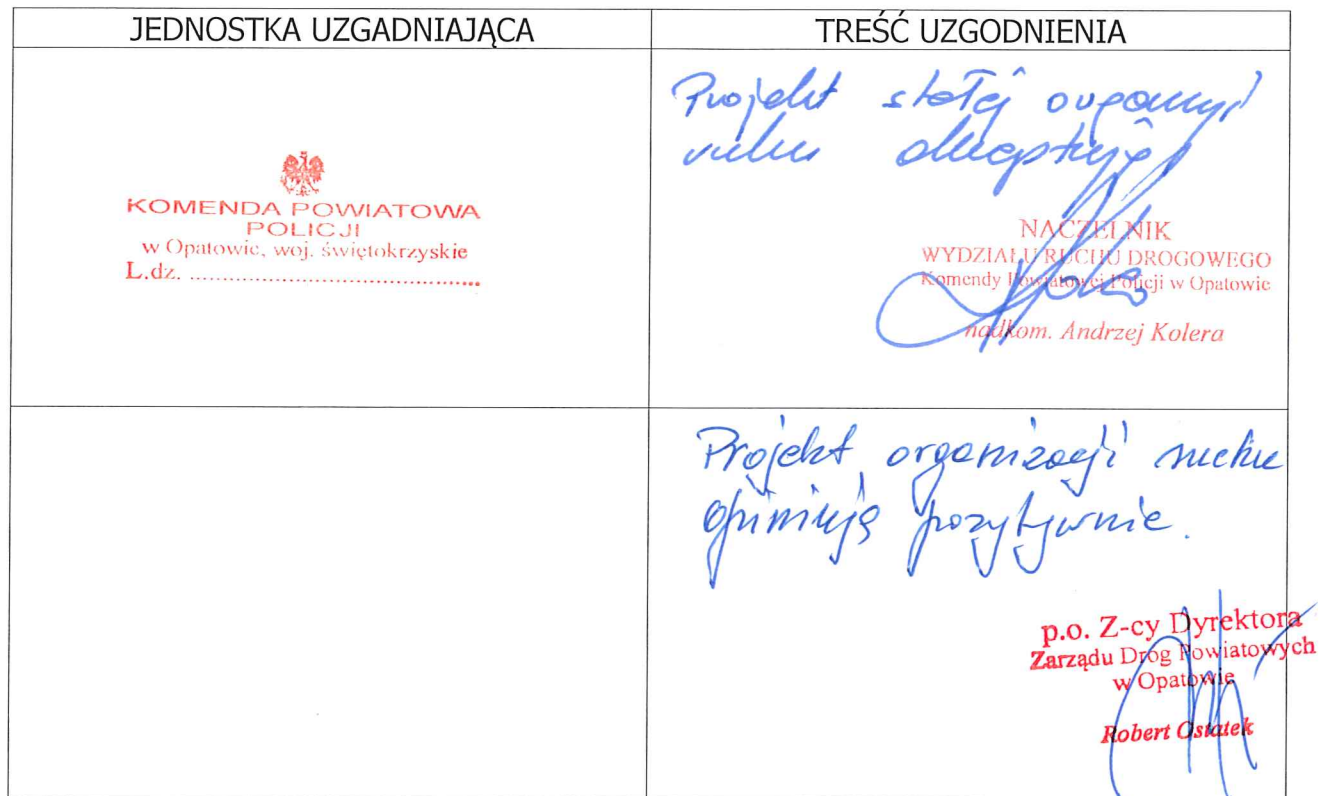 JEDNOSTKA UZGADNIAJĄCA
TREŚĆ UZGODNIENIA
KOMENDA POWIATOWA
POLICJI
w Opatowie, woj. świętokrzyskie
L.dz. ........................................
Projekt stałej organizacji
ruchu akceptuję
NACZELNIK
WYDZIAŁU RUCHU DROGOWEGO
Komendy Powiatowej Policji w Opatowie
nadkom. Andrzej Kolera
Projekt organizacji ruchu
opiniuję pozytywnie.
p.o. Z-cy Dyrektora
Zarządu Dróg Powiatowych
w Opatowie
Robert Ostatek